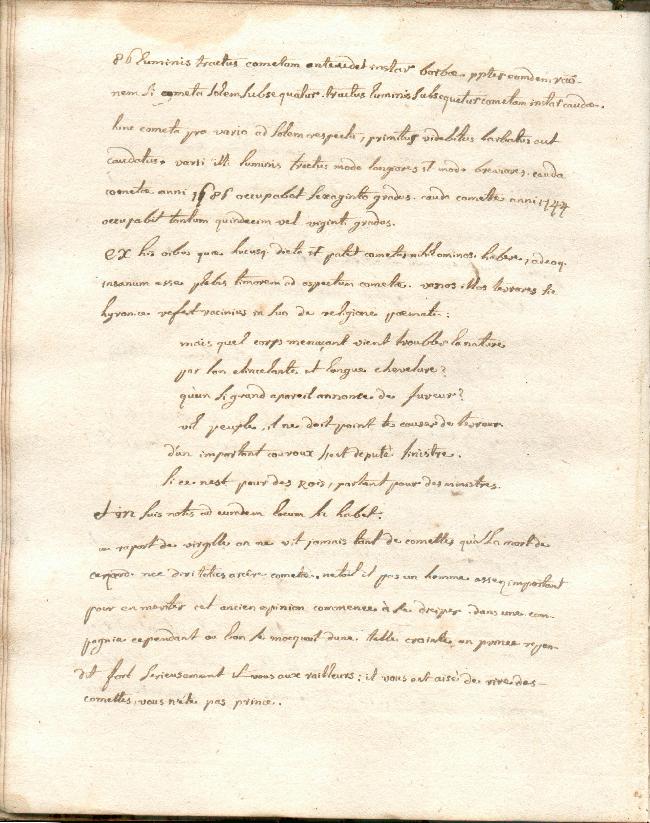 86 luminis tractus cometam antecedet instar barbæ. ppter eamdem rao-
nem si cometa solem subsequatur. tractus luminis subsequetur cometam instar caudæ.
hinc cometa pro vario ad solem respectu, primitus videbitur barbatus aut
caudatus. varii illi luminis tractus modo longiores st modo breviores. cauda
cometæ anni 1686 occupabat sexaginta gradus. cauda cometæ anni 1744
occupabit tantum quindecim vel viginti gradus.
ex his oibus quæ hucusq. dicta st patet cometas nihil ominosi habere, adeoq.
insanum esse plebis timorem ad aspectum cometæ. vanos illos terrores sic
refert racinius in suo de religione poemate:
mais quel corps menaçant vient troubler la nature
par son etincelante et longue chevelure?
qu'un si grand apareil annonce de fureur?
vil peuple, il ne doit point te causer de terreur
d'un important couroux s'est deputé sinistre.
si ce nest pour des Rois, partant pour des ministres.
et in suis notis ad eumdem locum sic habet.
au raport de virgille on ne vit jamais tant de comettes qu'a la mort de
nec diri toties arsere cometæ. netoit il pas un homme assez important
pour en meriter cet ancien opinion commence à se dissiper. dans une com-
pagnie cependant ou lon se mocquoit dune telle crainte un prince repon-
dit fort serieusement et vous aux railleurs: il vous est aisé de rire des-
comettes, vous n'ete pas prince.